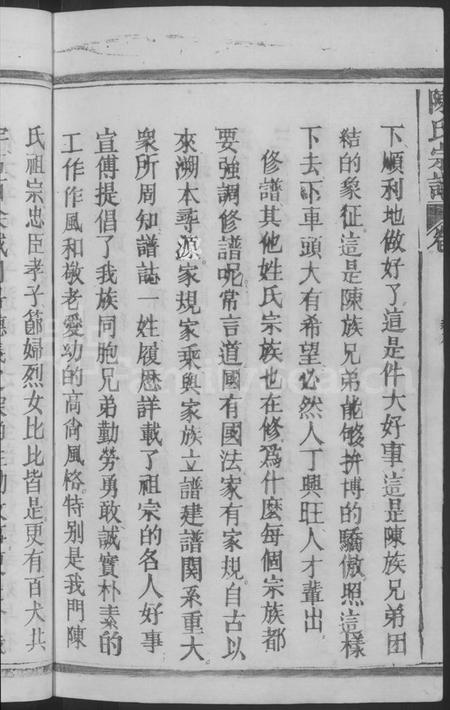 陳氏宗譜
下順利地做好了這是件大好事這是陳族兄弟团
结的象征這是陳族兄弟能够拚博的驕傲照這樣
下去下車頭大有希望必然人丁興旺人才輩出
修譜其他姓氏宗族也在修爲什麼每個宗族都
要強調修譜呢常言道國有國法家有家規自古以
來溯本尋源家規家乘與家族立譜建譜関系重大
衆所周知譜誌一姓履歷詳載了祖宗的各人好事
宣傳提倡了我族同胞兄弟勤勞勇敢誠實朴素的
工作作風和敬老愛幼的高尚風格特别是我門陳
氏祖宗忠臣孝子節婦烈女比比皆是更有百犬共